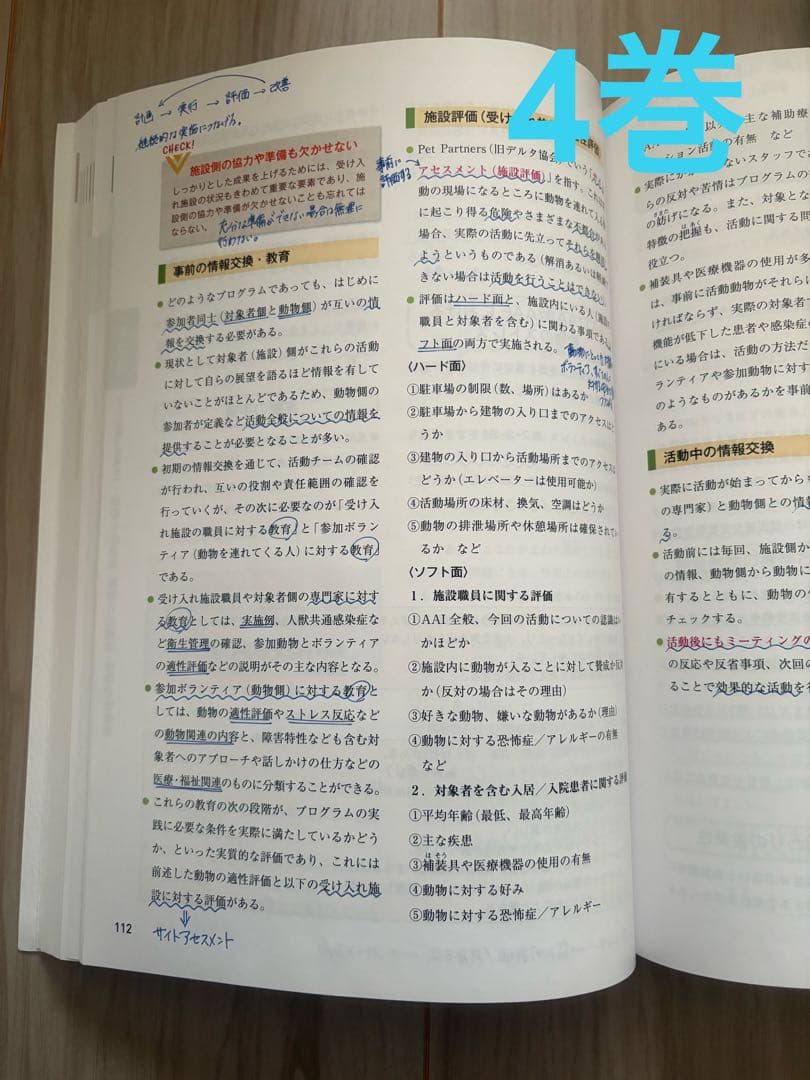 4巻
計画 → 実行 → 評価 → 改善
継続的な実施につなげる。
CHECK!
施設側の協力や準備も欠かせない
しっかりとした成果を上げるためには、受け入
れ施設の状況もきわめて重要な要素であり、施
設側の協力や準備が欠かせないことも忘れては
ならない。
充分な準備ができない場合は無理に
行わない。
事前の情報交換・教育
● どのようなプログラムであっても、はじめに
参加者同士(対象者側と動物側)が互いの情
報を交換する必要がある。
● 現状として対象者(施設)側がこれらの活動
に対して自らの展望を語るほど情報を有して
いないことがほとんどであるため、動物側の
参加者が定義など活動全般についての情報を
提供することが必要となることが多い。
● 初期の情報交換を通じて、活動チームの確認
が行われ、互いの役割や責任範囲の確認を
行っていくが、その次に必要なのが「受け入
れ施設の職員に対する教育」と「参加ボラン
ティア(動物を連れてくる人)に対する教育」
である。
● 受け入れ施設職員や対象者側の専門家に対す
る教育としては、実施例、人獣共通感染症な
ど衛生管理の確認、参加動物とボランティア
の適性評価などの説明がその主な内容となる。
● 参加ボランティア(動物側)に対する教育と
しては、動物の適性評価やストレス反応など
の動物関連の内容と、障害特性なども含む対
象者へのアプローチや話しかけの仕方などの
医療・福祉関連のものに分類することができる。
● これらの教育の次の段階が、プログラムの実
践に必要な条件を実際に満たしているかどう
か、といった実質的な評価であり、これには
前述した動物の適性評価と以下の受け入れ施
設に対する評価がある。
⇓
サイトアセスメント
112
施設評価(受け
● Pet Partners(旧デルタ協会)でいう「
事前に
評価する
アセスメント(施設評価)」を指す。これは
動の現場になるところに動物を連れて入る
に起こり得る危険やさまざまな不都合が
場合、実際の活動に先立ってそれらを
ようというものである(解消あるいは
きない場合は活動を行うことはできない)。
● 評価はハード面と、施設内にいる人(
職員と対象者を含む)に関わる事項である
フト面の両方で実施される。
〈ハード面〉
①駐車場の制限(数、場所)はあるか
②駐車場から建物の入り口までのアクセスはど
うか
③建物の入り口から活動場所までのアクセスは
どうか(エレベーターは使用可能か)
④活動場所の床材、換気、空調はどうか
⑤動物の排泄場所や休憩場所は確保されてい
るか など
〈ソフト面〉
1．施設職員に関する評価
①AAI全般、今回の活動についての認識は
かほどか
②施設内に動物が入ることに対して賛成か反対
か(反対の場合はその理由)
③好きな動物、嫌いな動物があるか(理由)
④動物に対する恐怖症／アレルギーの有無
など
2．対象者を含む入居／入院患者に関する評価
①平均年齢(最低、最高年齢)
②主な疾患
③補装具や医療機器の使用の有無
④動物に対する好み
⑤動物に対する恐怖症／アレルギー
主な補助療
ション活動の有無 など
● 実際にか
ないスタッフで
らの反対や苦情はプログラムの
の妨げになる。また、対象と
特徴の把握も、活動に関する問
役立つ。
● 補装具や医療機器の使用が多
は、事前に活動動物がそれらに
ければならず、実際の対象者
機能が低下した患者や感染症の
にいる場合は、活動の方法だ
ランティアや参加動物に対す
のようなものがあるかを事前
ある。
活動中の情報交換
● 実際に活動が始まってから
の専門家)と動物側との情報
る。
● 活動前には毎回、施設側か
の情報、動物側から動物に
有するとともに、動物の
チェックする。
● 活動後にもミーティングの
の反応や反省事項、次回の
ることで効果的な活動を